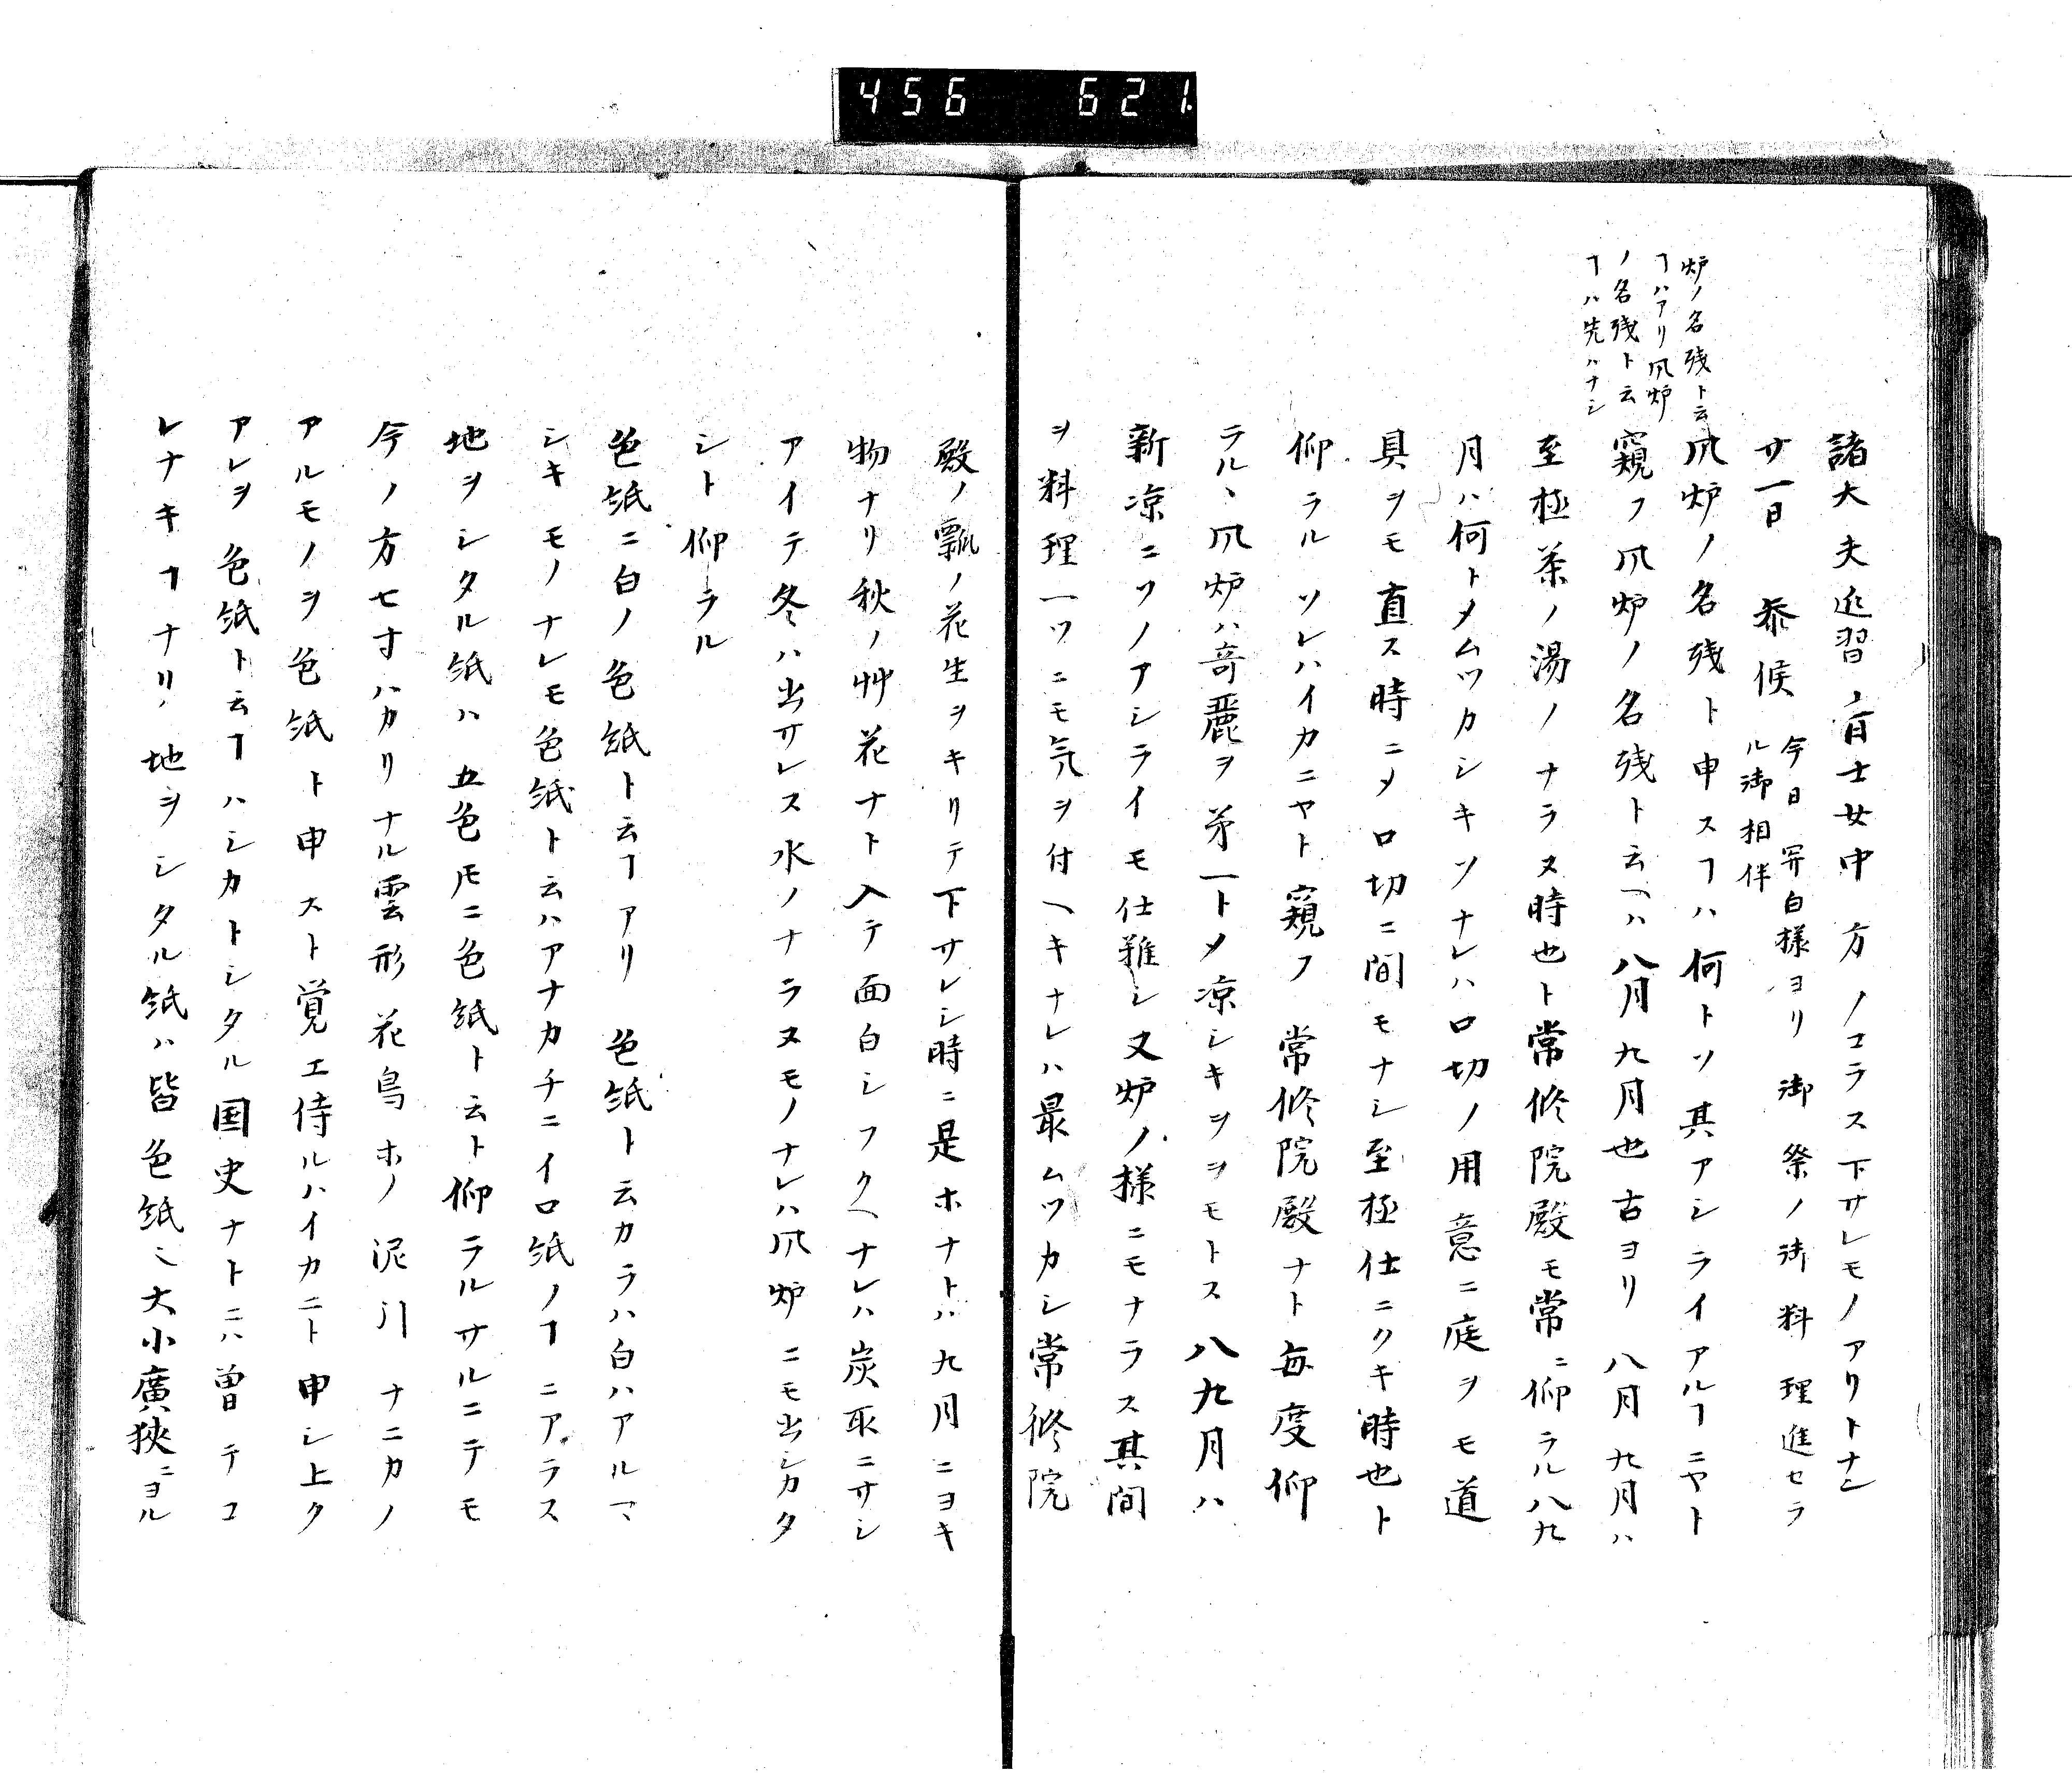 456 621
炉ノ名残ト云
ヿハアリ風炉
ノ名残ト云
ヿハ先ハナシ
諸大夫近習ノ盲士女中方ノコラス下サレモノアリトナン
廿一日 参候 今日関白様ヨリ御祭ノ御料理進セラ
ル御相伴
風炉ノ名残ト申スヿハ何トソ其アシライアルヿニヤト
窺フ風炉ノ名残ト云ヿハ八月九月也古ヨリ八月九月ハ
至極茶ノ湯ノナラヌ時也ト常修院殿モ常ニ仰ラル八九
月ハ何トメムツカシキソナレハ口切ノ用意ニ庭ヲモ道
具ヲモ直ス時ニメ口切ニ間モナシ至極仕ニクキ時也ト
仰ラルソレハイカニヤト窺フ常修院殿ナト毎度仰
ラルヽ風炉ハ奇麗ヲ第一トメ凉シキヲヲモトス八九月ハ
新凉ニツノアシライモ仕難シ又炉ノ様ニモナラス其間
ヲ料理一ツニモ気ヲ付ヘキナレハ最ムツカシ常修院
殿ノ瓢ノ花生ヲキリテ下サレシ時ニ是ホナトハ九月ニヨキ
物ナリ秋ノ艸花ナト入テ面白シフクヘナレハ炭取ニサシ
アイテ冬ハ出サレス水ノナラヌモノナレハ風炉ニモ出シカタ
シト仰ラル
色紙ニ白ノ色紙ト云ヿアリ色紙ト云カラハ白ハアルマ
シキモノナレモ色紙ト云ハアナカチニイロ紙ノヿニアラス
地ヲシタル紙ハ五色モニ色紙ト云ト仰ラルサルニテモ
今ノ方七寸ハカリナル雲形花鳥ホノ泥引ナニカノ
アルモノヲ色紙ト申スト覚エ侍ルハイカニト申シ上ク
アレヲ色紙ト云ヿハシカトシタル国史ナトニハ曽テコ
レナキヿナリ地ヲシタル紙ハ皆色紙ミ大小廣狭ニヨル